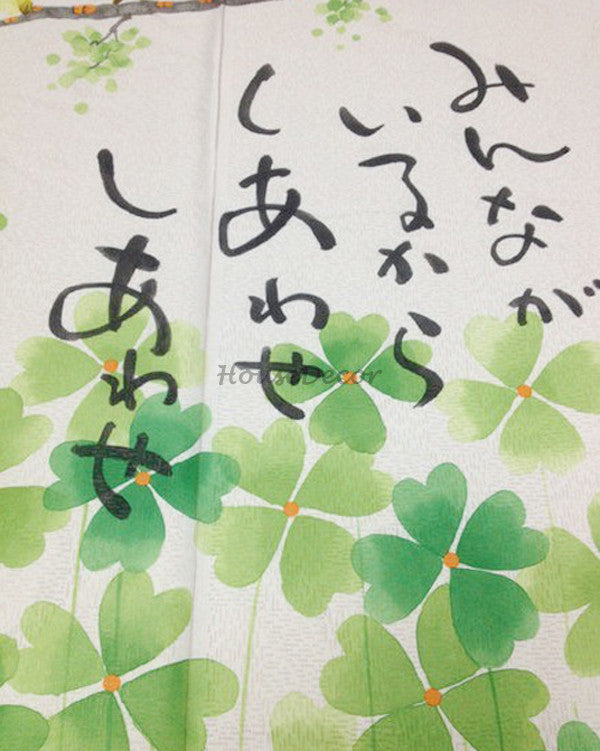 みんなが
いるから
しあわせ
しあわせ
HouseDecor